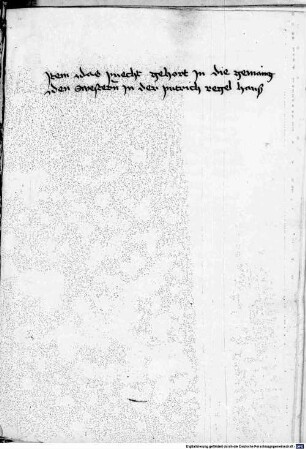 Item das puech gehort in die gemaing
den Swestern in der putrich regel hauß
Digitalisierung gefördert durch die Deutsche Forschungsgemeinschaft DFG